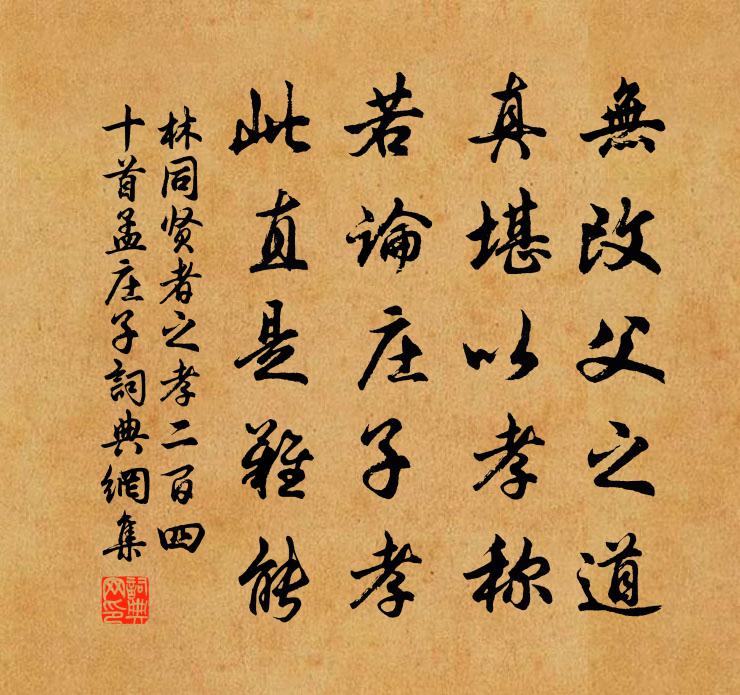 無改父之道
真堪以孝称
若論庄子孝
此直是難能
林同贤者之孝二百四
十首孟庄子詞典網集
詞典
网印